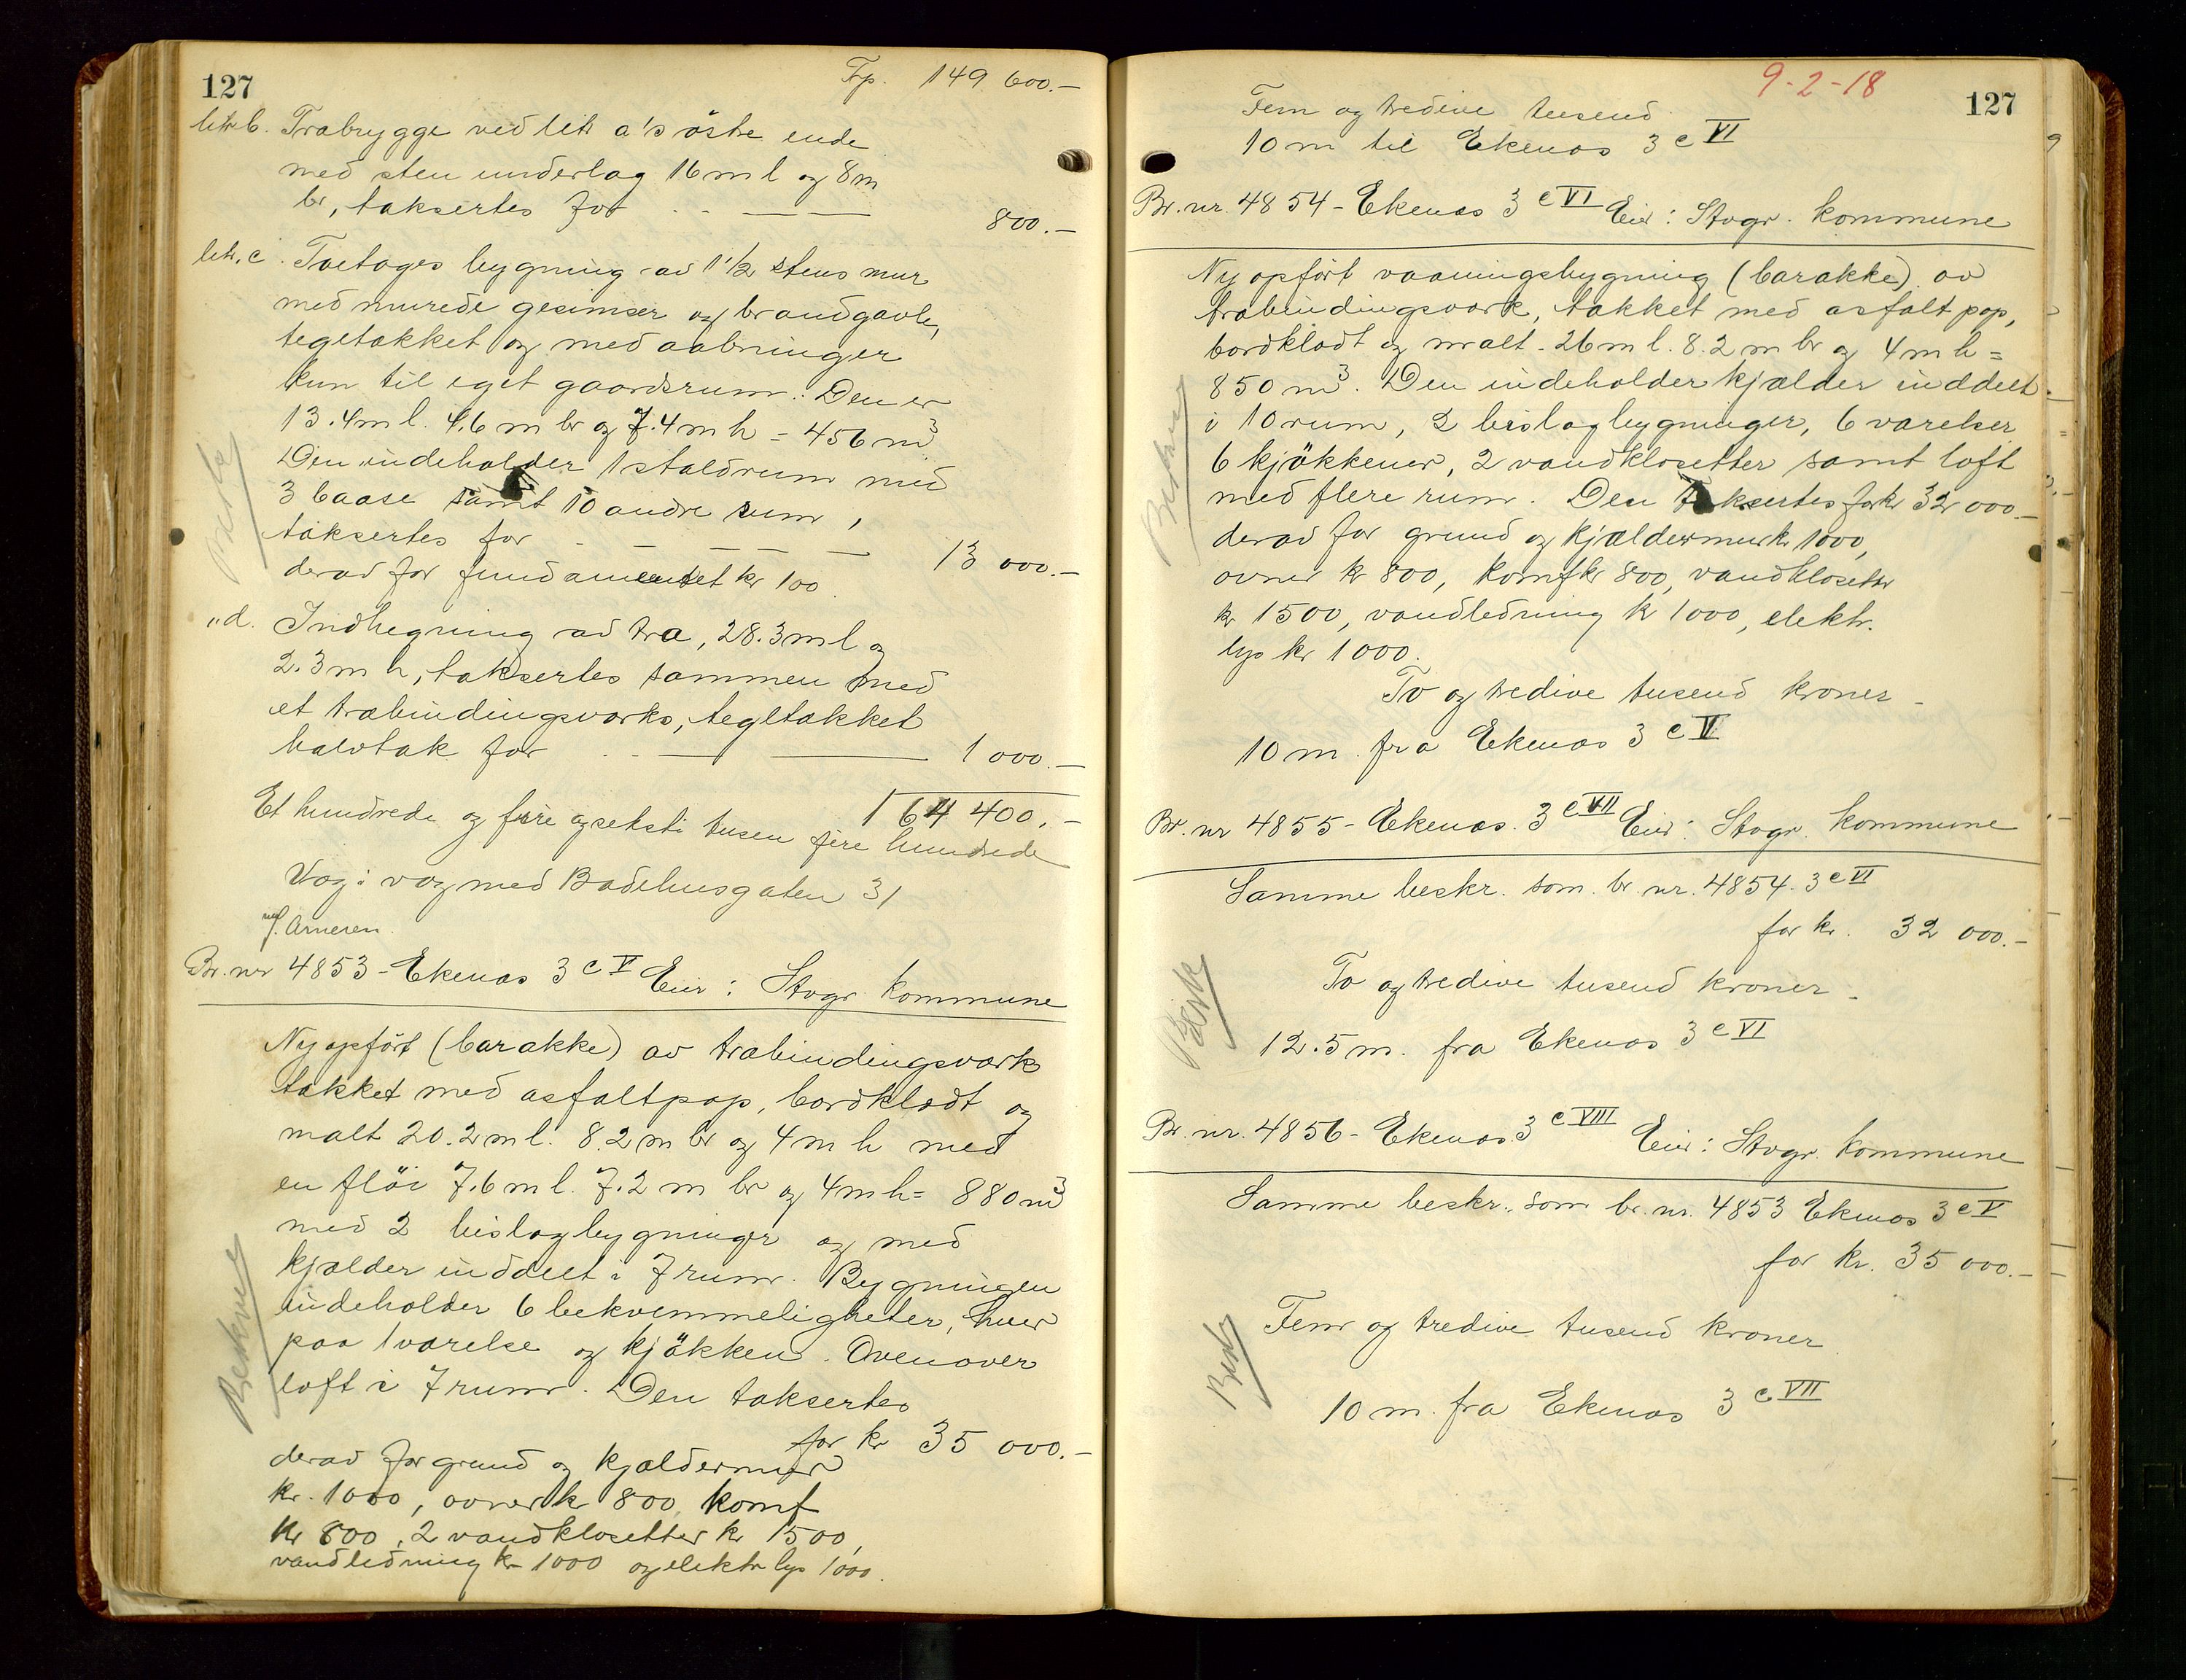 127
Trp. 149 600.-
litr b. Træbrygge ved litr a's østre ende
med sten underlag 16 m l og 8 m
br, taksertes for - - — — 800.-
litr. c. Toetages bygning av 1 1/2 stens mur
med murede gesimser og brandgavle,
tegltækket og med aabninger
kun til eget gaardsrum. Den er
13.4 m l. 4.6 m br og 7.4 m h = 456 m³
Den indeholder 1 staldrum med
3 baase samt 10 andre rum,
taksertes for - — — — 13 000.-
derav for fundamentet kr 100.
" d. Indhegning av træ, 28.3 m l og
2.3 m h, taksertes sammen med
et træbindingsverks, tegltækket
halvtak for - — — 1 000.-
164 400.-
Et hundrede og fire og seksti tusen fire hundrede
Væg i væg med Badehusgaten 31
Br. nr 4853 - Ekenæs 3 c V Eier: Stvgr kommune
Ny opført (barakke) av træbindingsverk
tækket med asfaltpap, bordklædt og
malt 20.2 m l. 8.2 m br og 4 m h med
en fløi 7.6 m l. 7.2 m br og 4 m h = 880 m³
med 2 bislagbygninger og med
kjælder inddelt i 7 rum. Bygningen
indeholder 6 bekvemmeligheter, hver
paa 1 værelse og kjøkken. Ovenover
loft i 7 rum. Den taksertes
for kr 35 000.-
derav for grund og kjældermur
kr. 1000, ovner kr 800, komf
kr 800, 2 vandklosetter kr 1500,
vandledning kr 1000 og elektr lys 1000.
9-2-18
127
Fem og tredive tusend
10 m til Ekenæs 3 c VI
Br. nr. 4854 - Ekenæs 3 c VI Eier: Stvgr. kommune
Ny opført vaaningsbygning (barakke) av
træbindingsverk, tækket med asfalt pap,
bordklædt og malt - 26 m l. 8.2 m br og 4 m h =
850 m³. Den indeholder kjælder inddelt
i 10 rum, 2 bislagbygninger, 6 værelser
6 kjøkkener, 2 vandklosetter samt loft
med flere rum. Den taksertes for kr 32 000.-
derav for grund og kjældermur kr 1000,
ovner kr 800, komf kr 800, vandklosetter
kr 1500, vandledning kr 1000, elektr.
lys kr 1000.
To og tredive tusend kroner -
10 m. fra Ekenæs 3 c V
Br. nr 4855 - Ekenæs. 3 c VII Eier: Stvgr. kommune
Samme beskr. som br. nr. 4854. 3 c VI
for kr. 32 000.-
To og tredive tusend kroner -
12.5 m. fra Ekenæs 3 c VI
Br. nr. 4856 - Ekenæs. 3 c VIII Eier: Stvgr. kommune
Samme beskr. som br. nr. 4853 Ekenæs 3 c V
for kr. 35 000.-
Fem og tredive tusend kroner
10 m. fra Ekenæs 3 c VII